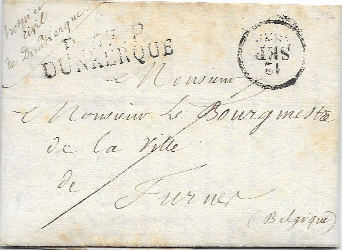 civil
de Dunkerque
P. 57. P.
DUNKERQUE
12
SEP
Monsieur
Monsieur Le Bourgmestre
de la Ville
de
Furnes
(Belgique)